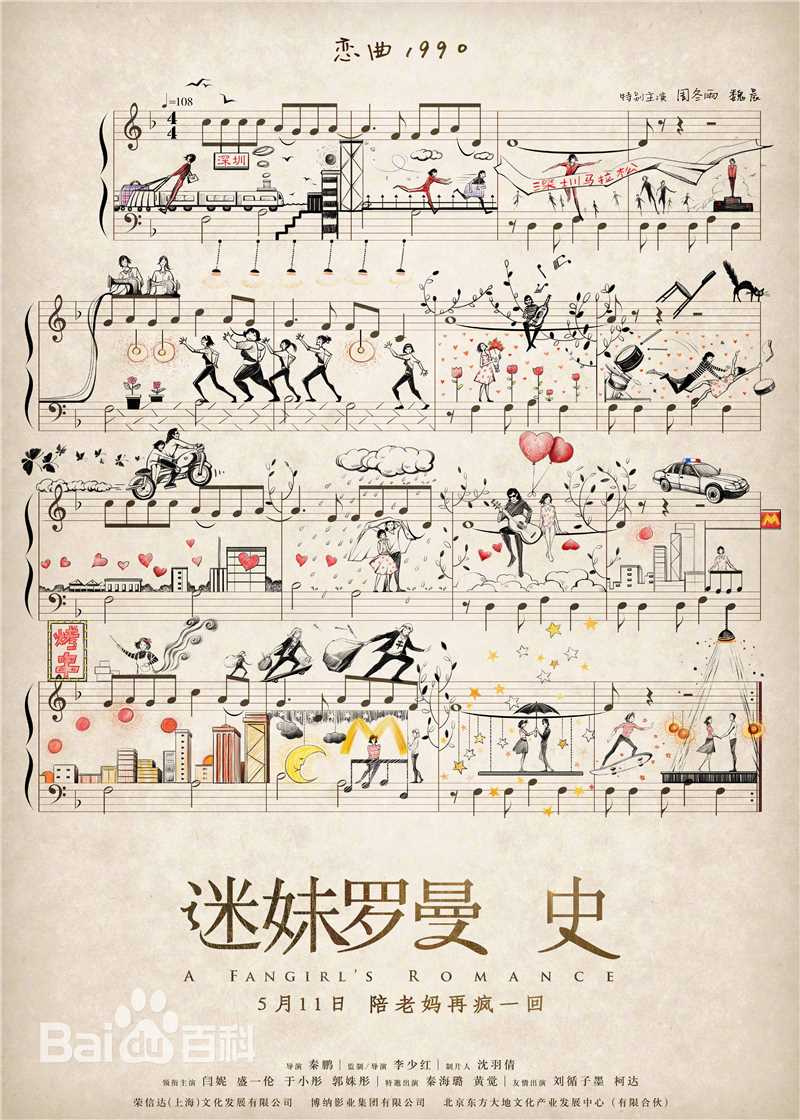 恋曲1990
♩=108
特别主演 周冬雨 魏晨
4
4
深圳
深圳马拉松
M
烤串
M
迷妹罗曼 史
A FANGIRL'S ROMANCE
5月11日 陪老妈再疯一回
Bai百科
导演 秦鹏 | 监制/导演 李少红 | 制片人 沈羽倩
领衔主演 闫妮 盛一伦 于小彤 郭姝彤 | 特邀出演 秦海璐 黄觉 | 友情出演 刘循子墨 柯达
荣信达(上海)文化发展有限公司 博纳影业集团有限公司 北京东方大地文化产业发展中心(有限合伙)